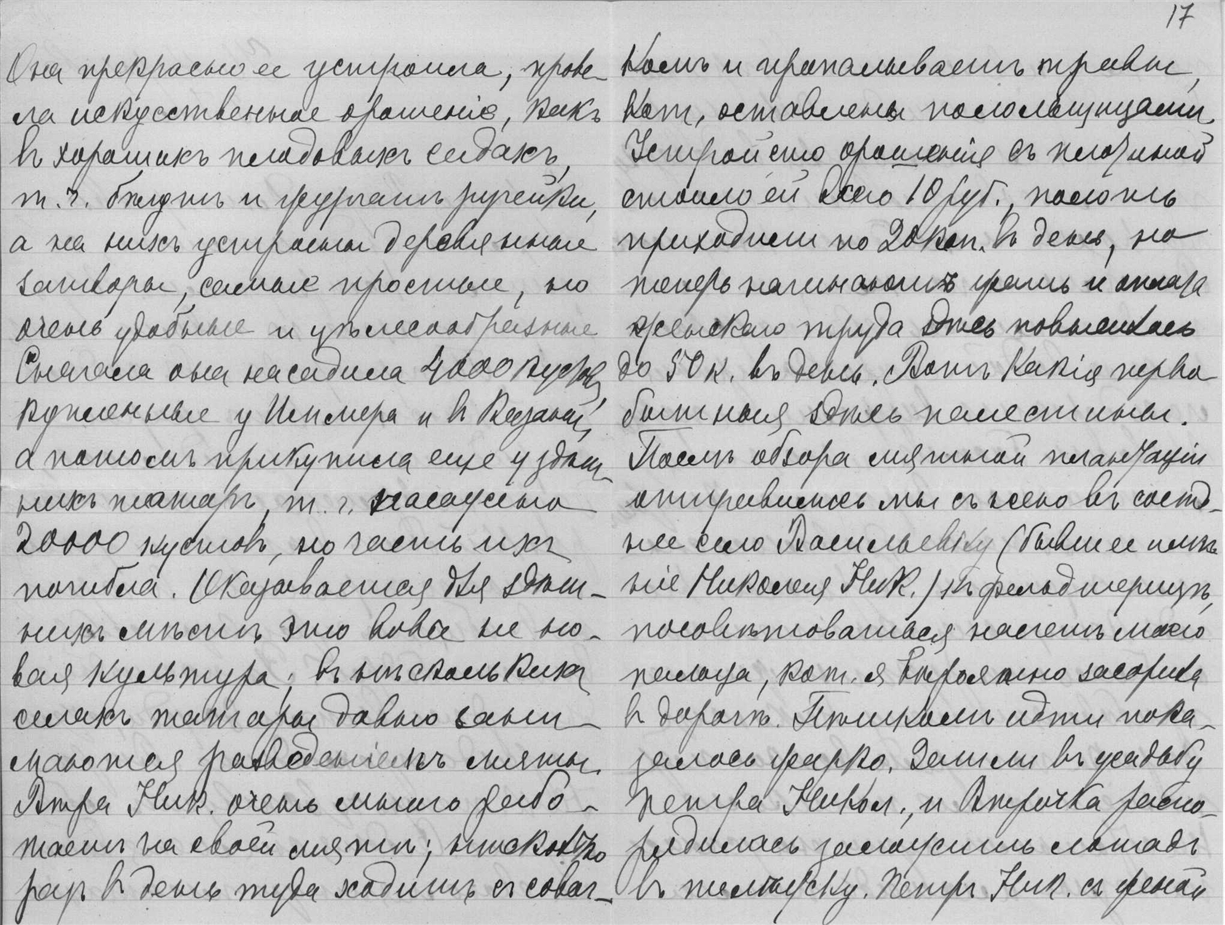 17
Она прекрасно ее устроила, прове-
ла искусственное орошеніе, какъ
въ хорошихъ плодовыхъ садахъ,
т. ч. бѣгутъ и журчатъ ручейки,
а на нихъ устроены деревянные
затворы, самые простые, но
очень удобные и цѣлесообразные
Сначала она насадила 4000 кустовъ,
купленные у Иммера и въ Казани,
а потомъ прикупила еще у здѣш-
нихъ татаръ, т. ч. насажено
20000 кустовъ, но часть ихъ
погибла. Оказывается для здѣш-
нихъ мѣстъ это вовсе не но-
вая культура; въ нѣсколькихъ
селахъ татары давно зани-
маются разведеніемъ мяты.
Вѣра Ник. очень много рабо-
таетъ на своей мятѣ; нѣсколько
разъ въ день туда ходитъ съ совоч-
комъ и пропалываетъ травы,
кот. оставлены полольщицами.
Устройство орошенія съ плотиной
стоило ей всего 10 руб., полоть
приходили по 20 коп. въ день, но
теперь начинаютъ жать и оплата
женскаго труда здѣсь повысилась
до 50 к. въ день. Вотъ какія перво-
бытныя здѣсь палестины.
Послѣ обзора мятной плантаціи
отправились мы съ нею въ сосѣд-
нее село Васильевку (бывшее имѣ-
ніе Николая Ник.) къ фельдшерицѣ,
посовѣтоваться насчетъ моего
пальца, кот. я вѣроятно засорила
въ дорогѣ. Пѣшкомъ идти пока-
залось жарко. Зашли въ усадьбу
Петра Никол., и Вѣрочка распо-
рядилась заложить лошадь
въ телѣжку. Петръ Ник. съ женой